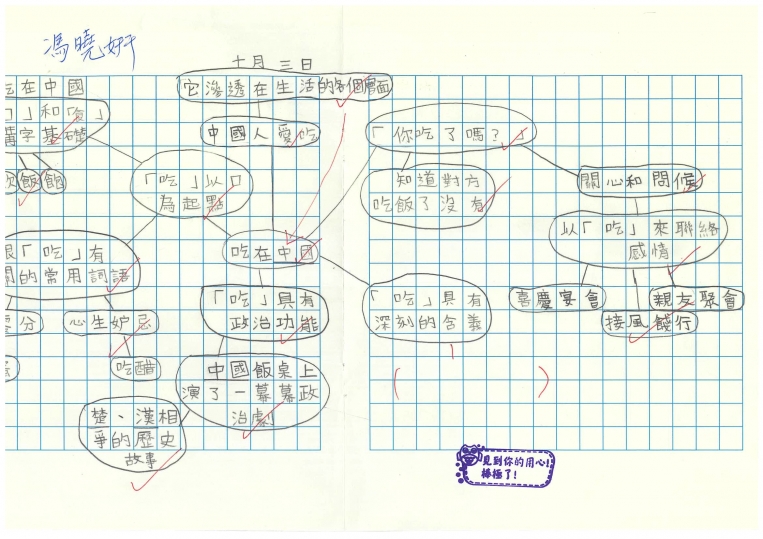 馮曉妍
十月三日
吃在中國
它滲透在生活的各個層面
」和「食」
構字基礎
飲
飯
飽
中國人愛吃
「你吃了嗎？」
「吃」以口
為起點
知道對方
吃飯了沒有
關心和問候
以「吃」來聯絡
感情
跟「吃」有
關的常用詞語
吃在中國
喜慶宴會
親友聚會
接風餞行
「吃」具有
政治功能
「吃」具有
深刻的含義
分
心生妒忌
吃醋
中國飯桌上
演了一幕幕政
治劇
( )
楚、漢相
爭的歷史
故事
見到你的用心!
棒極了!